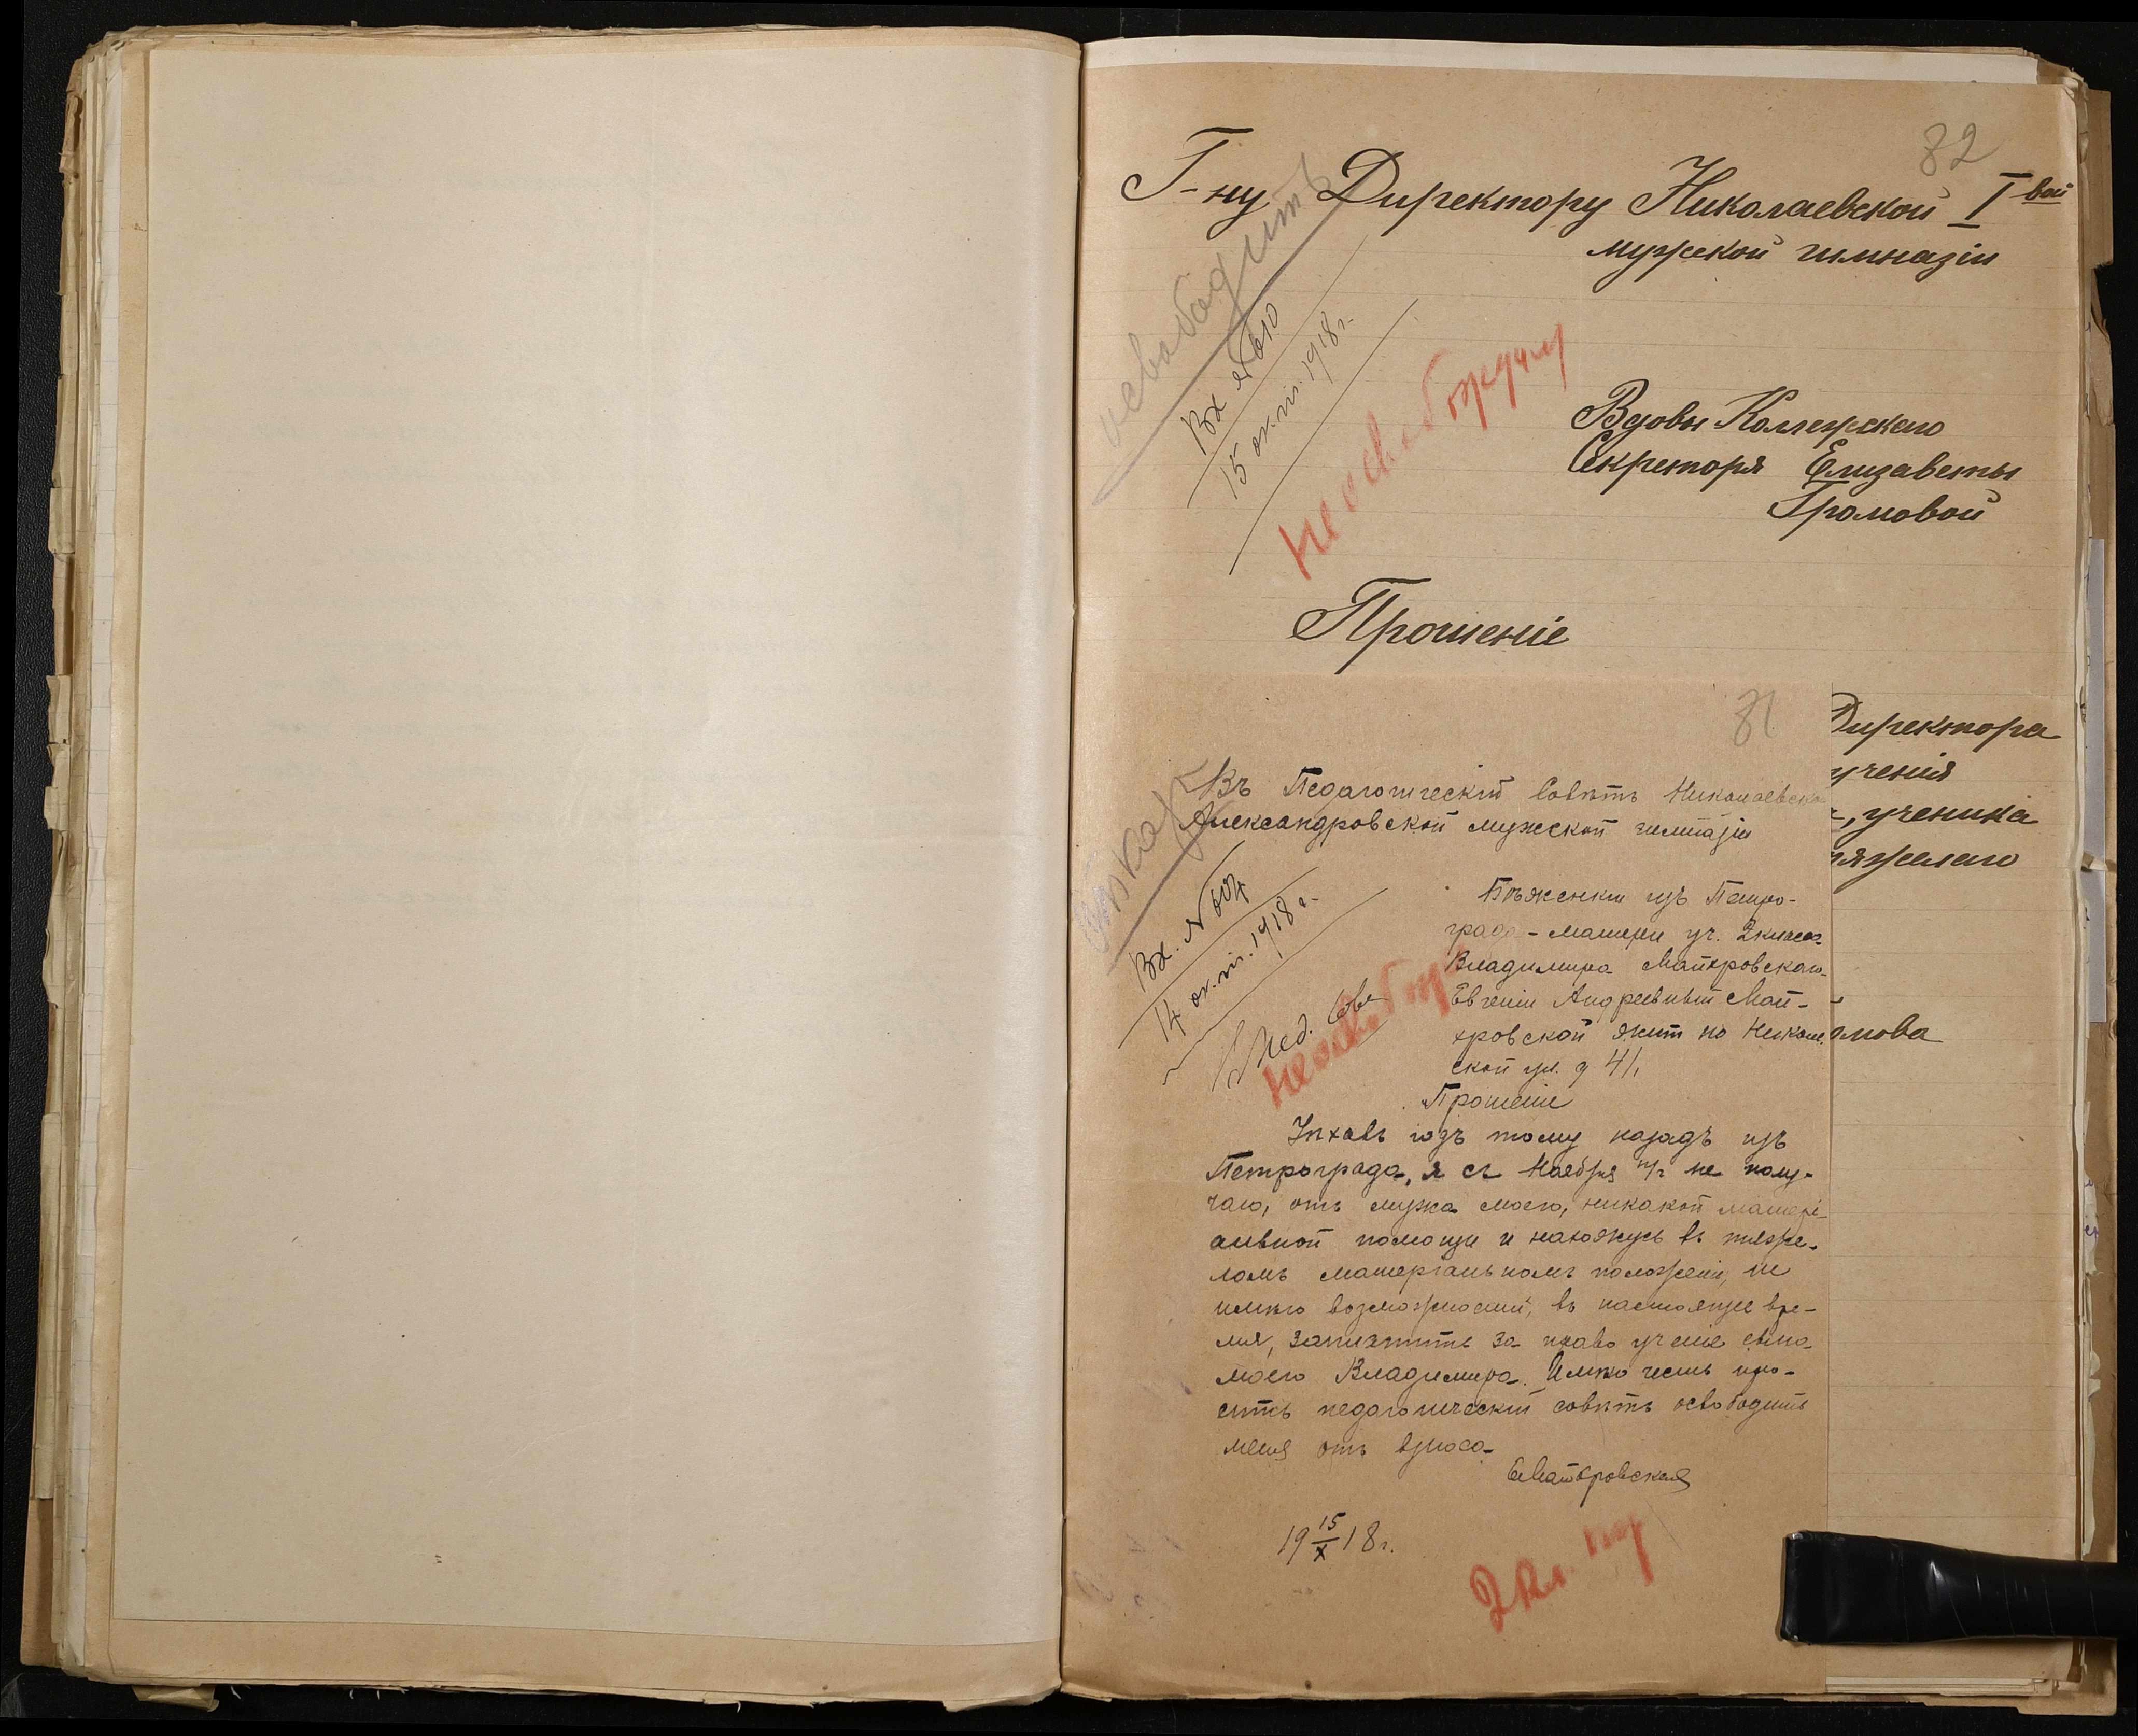 82
Г-ну Директору Николаевской I-вой
мужской гимназіи
освободить
Вх №610
15 окт. 1918 г.
Вдовы Коллежскаго
Секретаря Елизаветы
Громовой
Прошеніе
Директора
ученія
, ученика
тяжелаго
мова
81
Въ Педагогическій Совѣтъ Николаевской
Александровской мужской гимназіи
Вх. №604
14 окт. 1918 г.
Пед. Сов
Бѣженки изъ Петро-
града - матери уч. 2 класса
Владимира
Евгеніи Андреевны Май-
ровской жит по Никол.
ской ул. д 41,
Прошеніе
Уѣхавъ годъ тому назадъ изъ
Петрограда, я съ Ноября п/г не полу-
чаю, отъ мужа моего, никакой матері
альной помощи и нахожусь въ тяже-
ломъ матеріальномъ положеніи, не
имѣю возможности, въ настоящее вре-
мя, заплатить за право ученіе сына
моего Владимира. Имѣю честь про-
сить педагогическій совѣтъ освободить
меня отъ взноса
19 15/X 18 г.
2 кл.